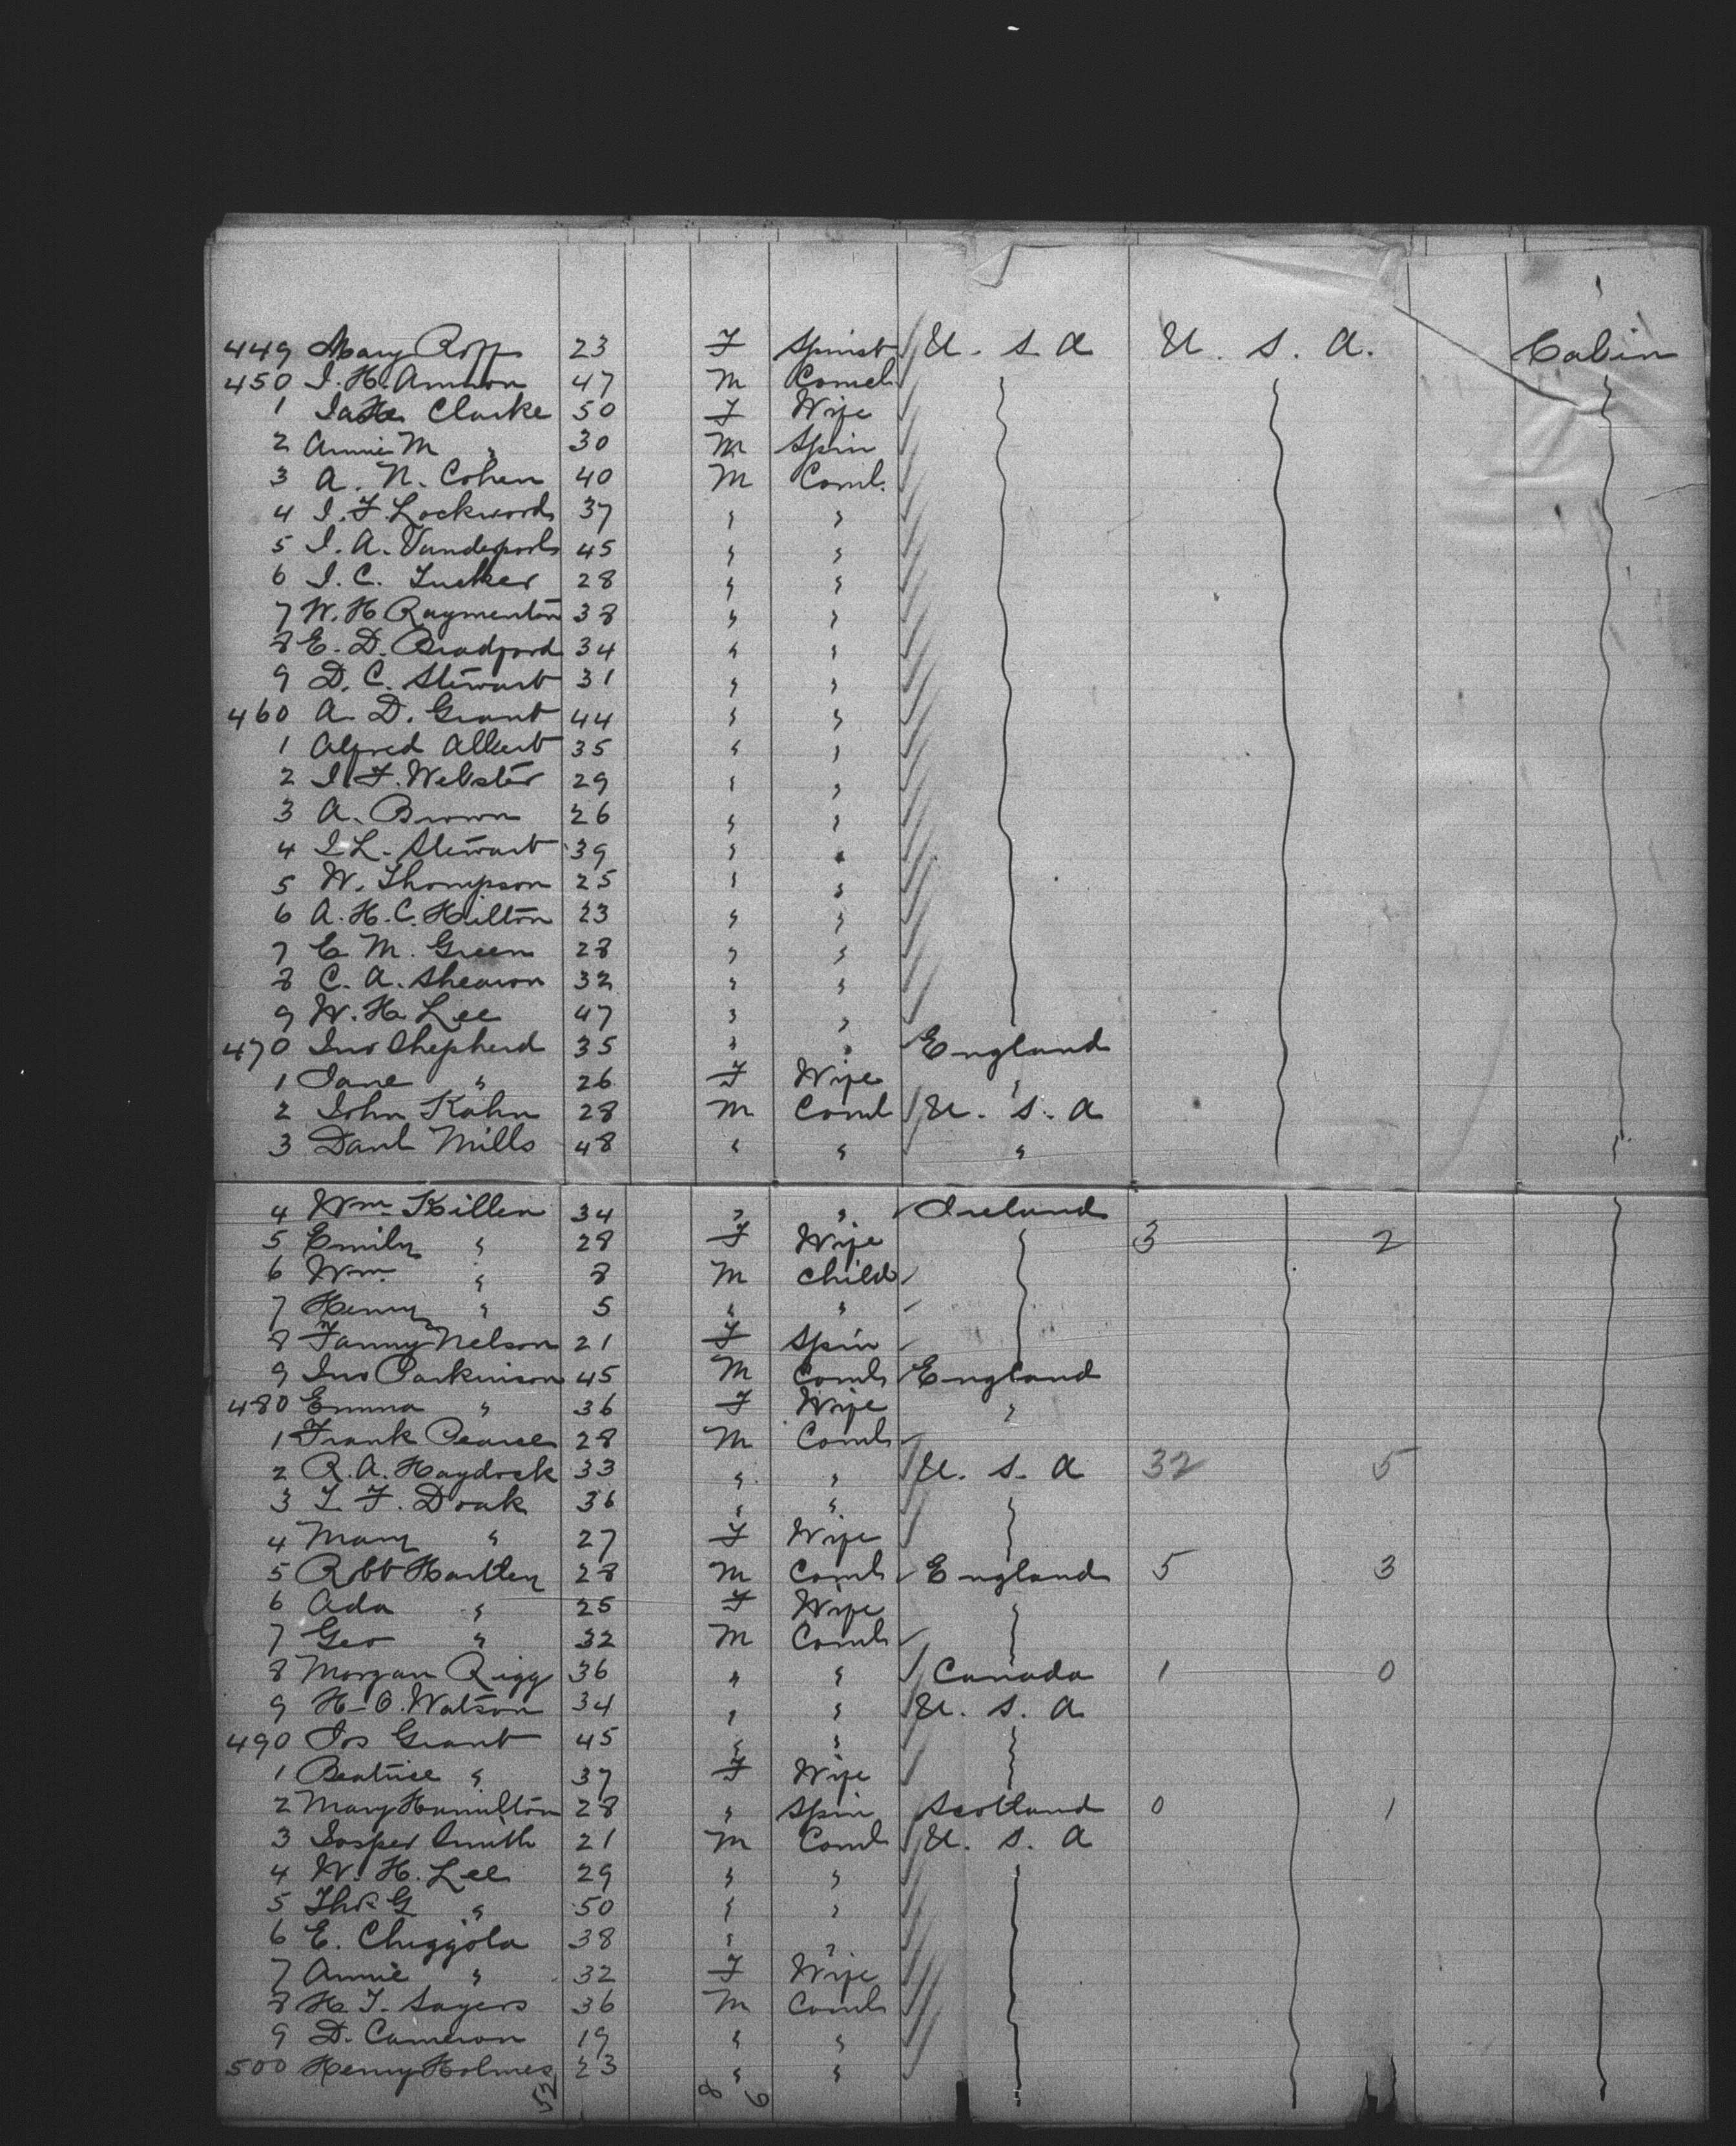 449 Mary Roff 23 F Spinst U. S. A U. S. A. Cabin
450 I. H. Ammon 47 M Comcl
1 Clarke 50 F Wife
2 Annie M " 30 M Spin
3 A. N. Cohen 40 M Coml.
4 I. F. Lockwood 37 " "
5 I. A. Vanderpool 45 " "
6 I. C. Tucker 28 " "
7 W. H Raymenton 38 " "
8 E. D. Bradford 34 " "
9 D. C. Stewart 31 " "
460 A. D. Grant 44 " "
1 Alfred Albert 35 " "
2 I. F. Webster 29 " "
3 A. Brown 26 " "
4 I L. Stewart 39 " "
5 W. Thompson 25 " "
6 A. H. C. Hilton 23 " "
7 E. M. Green 28 " "
8 C. A. Shearon 32 " "
9 W. H. Lee 47 " "
470 Jno Shepherd 35 " " England
1 Jane " 26 F Wife "
2 John Kahn 28 M Coml U. S. A
3 Danl Mills 48 " " "
4 Wm Killen 34 " " Ireland
5 Emily " 28 F Wife 3 2
6 Wm. " 8 M Child
7 Henry " 5 " "
8 Fanny Nelson 21 F Spin
9 Jno Parkinson 45 M Coml England
480 Emma " 36 F Wife "
1 Frank Pearse 28 M Coml
2 R. A. Haydock 33 " " U. S. A 32 5
3 T. F. Doak 36 " "
4 Mary " 27 F Wife
5 Robt Hartley 28 M Coml England 5 3
6 Ada " 25 F Wife
7 Geo " 32 M Coml
8 Morgan Rigg 36 " " Canada 1 0
9 H. O. Watson 34 " " U. S. A
490 Jos Grant 45 " "
1 Beatrice " 37 F Wife
2 Mary Hamilton 28 " Spin Scotland 0 1
3 Jasper Smith 21 M Coml U. S. A
4 W. H. Lee 29 " "
5 Thos G " 50 " "
6 E. Chiggola 38 " "
7 Annie " 32 F Wife
8 H. T. Sayers 36 M Coml
9 D. Cameron 19 " "
500 Henry Holmes 23 " "
52 8 6